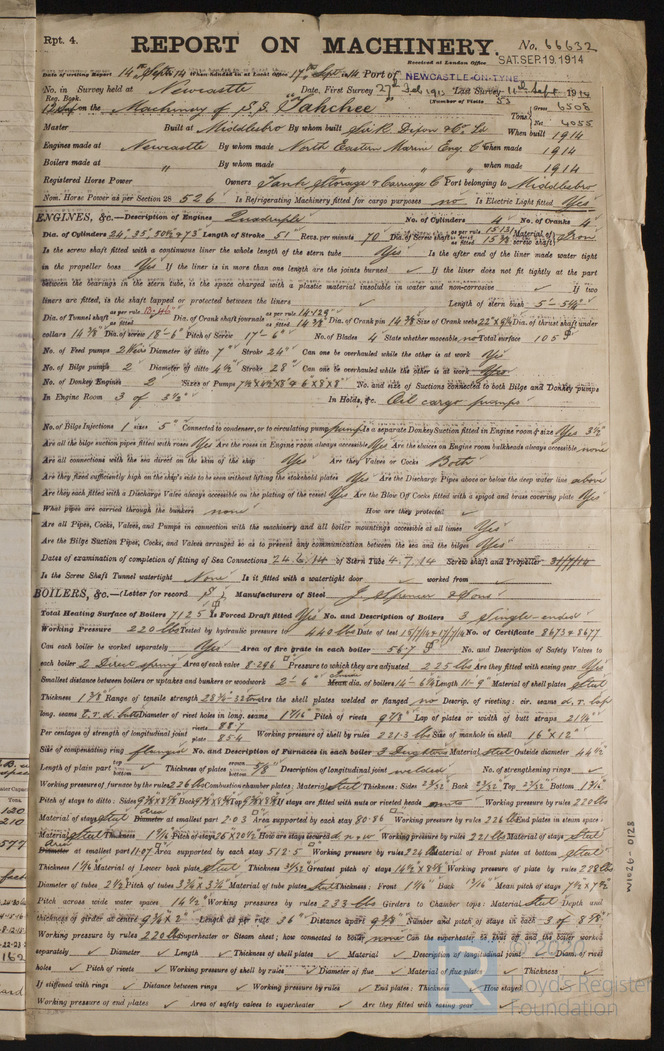 Rpt. 4.
REPORT ON MACHINERY.
No. 66632
Received at London Office SAT. SEP. 19. 1914
Date of writing Report 14th Sept 14 When handed in at Local Office 17th Sept. 1914 Port of NEWCASTLE-ON-TYNE
No. in Survey held at Newcastle Date, First Survey 27th Feb 1913 Last Survey 11th Sept 1914
Reg. Book. (Number of Visits 53
12 Sup on the Machinery of S.S. "Tahchee" Tons Gross 6508
Net 4055
Master Built at Middlesbro By whom built Sir R. Dixon & Co. Ld When built 1914
Engines made at Newcastle By whom made North Eastern Marine Eng. Co when made 1914
Boilers made at " By whom made " when made 1914
Registered Horse Power Owners Tank Storage & Carriage Co Port belonging to Middlesbro
Nom. Horse Power as per Section 28 526 Is Refrigerating Machinery fitted for cargo purposes no Is Electric Light fitted Yes
ENGINES, &c.—Description of Engines Quadruple No. of Cylinders 4 No. of Cranks 4
Dia. of Cylinders 24", 35", 50½ & 73" Length of Stroke 51 Revs. per minute 70 Dia. of Screw shaft as per rule 15.131 Material of screw shaft Iron
as fitted 15¾
Is the screw shaft fitted with a continuous liner the whole length of the stern tube Yes Is the after end of the liner made water tight
in the propeller boss Yes If the liner is in more than one length are the joints burned ✓ If the liner does not fit tightly at the part
between the bearings in the stern tube, is the space charged with a plastic material insoluble in water and non-corrosive ✓ If two
liners are fitted, is the shaft lapped or protected between the liners ✓ Length of stern bush 5'-5½"
Dia. of Tunnel shaft as per rule 13.46 as fitted Dia. of Crank shaft journals as per rule 14.129 as fitted 14⅜ Dia. of Crank pin 14⅜ Size of Crank webs 22"x9¼ Dia. of thrust shaft under
collars 14⅜ Dia. of screw 18'-6" Pitch of Screw 17'-6" No. of Blades 4 State whether moveable no Total surface 105
No. of Feed pumps 2 Weirs Diameter of ditto 7" Stroke 24" Can one be overhauled while the other is at work Yes
No. of Bilge pumps 2 Diameter of ditto 4½ Stroke 28" Can one be overhauled while the other is at work Yes
No. of Donkey Engines 2 Sizes of Pumps No. and size of Suctions connected to both Bilge and Donkey pumps
In Engine Room 3 of 3½" In Holds, &c. Oil cargo pumps
No. of Bilge Injections 1 sizes 5" Connected to condenser, or to circulating pump pump Is a separate Donkey Suction fitted in Engine room & size Yes 3½"
Are all the bilge suction pipes fitted with roses Yes Are the roses in Engine room always accessible Yes Are the sluices on Engine room bulkheads always accessible none
Are all connections with the sea direct on the skin of the ship Yes Are they Valves or Cocks Both
Are they fixed sufficiently high on the ship's side to be seen without lifting the stokehold plates Yes Are the Discharge Pipes above or below the deep water line above
Are they each fitted with a Discharge Valve always accessible on the plating of the vessel Yes Are the Blow Off Cocks fitted with a spigot and brass covering plate Yes
What pipes are carried through the bunkers none How are they protected ✓
Are all Pipes, Cocks, Valves, and Pumps in connection with the machinery and all boiler mountings accessible at all times Yes
Are the Bilge Suction Pipes, Cocks, and Valves arranged so as to prevent any communication between the sea and the bilges Yes
Dates of examination of completion of fitting of Sea Connections 24.6.14 of Stern Tube 4.7.14 Screw shaft and Propeller 31/7/14
Is the Screw Shaft Tunnel watertight None Is it fitted with a watertight door ✓ worked from ✓
BOILERS, &c.—(Letter for record S); Manufacturers of Steel J. Spencer & Sons
Total Heating Surface of Boilers 7125 Is Forced Draft fitted Yes No. and Description of Boilers 3 Single-ended
Working Pressure 220 lbs Tested by hydraulic pressure to 440 lbs Date of test No. of Certificate 8673 & 8677
Can each boiler be worked separately Yes Area of fire grate in each boiler 56.7 No. and Description of Safety Valves to
each boiler 2 Direct spring Area of each valve 8.296 Pressure to which they are adjusted 225 lbs Are they fitted with easing gear Yes
Smallest distance between boilers or uptakes and bunkers or woodwork 2'-6" Mean dia. of boilers 14'-6¼ Length 11'-9" Material of shell plates Steel
Thickness 1⅜ Range of tensile strength Are the shell plates welded or flanged no Descrip. of riveting: cir. seams d.r. lap
long. seams t.r.d. butts Diameter of rivet holes in long. seams 1 7/16 Pitch of rivets 9⅞ Lap of plates or width of butt straps 21¼"
Per centages of strength of longitudinal joint rivets 88.7 plate 85.4 Working pressure of shell by rules 221.3 lbs Size of manhole in shell 16"x12"
Size of compensating ring flanged No. and Description of Furnaces in each boiler 3 Deightons Material Steel Outside diameter 44½
Length of plain part top bottom ✓ Thickness of plates crown bottom 5/8" Description of longitudinal joint welded No. of strengthening rings ✓
Working pressure of furnace by the rules 226 lbs Combustion chamber plates: Material Steel Thickness: Sides 23/32 Back 23/32 Top 23/32 Bottom
Pitch of stays to ditto: Sides Back Top If stays are fitted with nuts or riveted heads nuts Working pressure by rules 220 lbs
Material of stays Steel Area Diameter at smallest part 2.03 Area supported by each stay 80.86 Working pressure by rules 226 lbs End plates in steam space:
Material Steel Thickness Pitch of stays How are stays secured d.n.w. Working pressure by rules 221 lbs Material of stays Steel
Area Diameter at smallest part 11.07 Area supported by each stay 512.5 Working pressure by rules 224 lbs Material of Front plates at bottom Steel
Thickness Material of Lower back plate Steel Thickness Greatest pitch of stays Working pressure of plate by rules 228 lbs
Diameter of tubes 2½ Pitch of tubes 3¾ x 3¾ Material of tube plates Steel Thickness: Front Back Mean pitch of stays
Pitch across wide water spaces 14½" Working pressures by rules 233 lbs Girders to Chamber tops: Material Steel Depth and
thickness of girder at centre 9¾ x 2" Length as per rule 36" Distance apart Number and pitch of stays in each 3 of 8⅜"
Working pressure by rules 220 lbs Superheater or Steam chest; how connected to boiler none Can the superheater be shut off and the boiler worked
separately ✓ Diameter ✓ Length ✓ Thickness of shell plates ✓ Material ✓ Description of longitudinal joint ✓ Diam. of rivet
holes ✓ Pitch of rivets ✓ Working pressure of shell by rules ✓ Diameter of flue ✓ Material of flue plates ✓ Thickness ✓
If stiffened with rings ✓ Distance between rings ✓ Working pressure by rules ✓ End plates: Thickness ✓ How stayed
Working pressure of end plates ✓ Area of safety valves to superheater ✓ Are they fitted with easing gear ✓
Lloyd's Register
Foundation